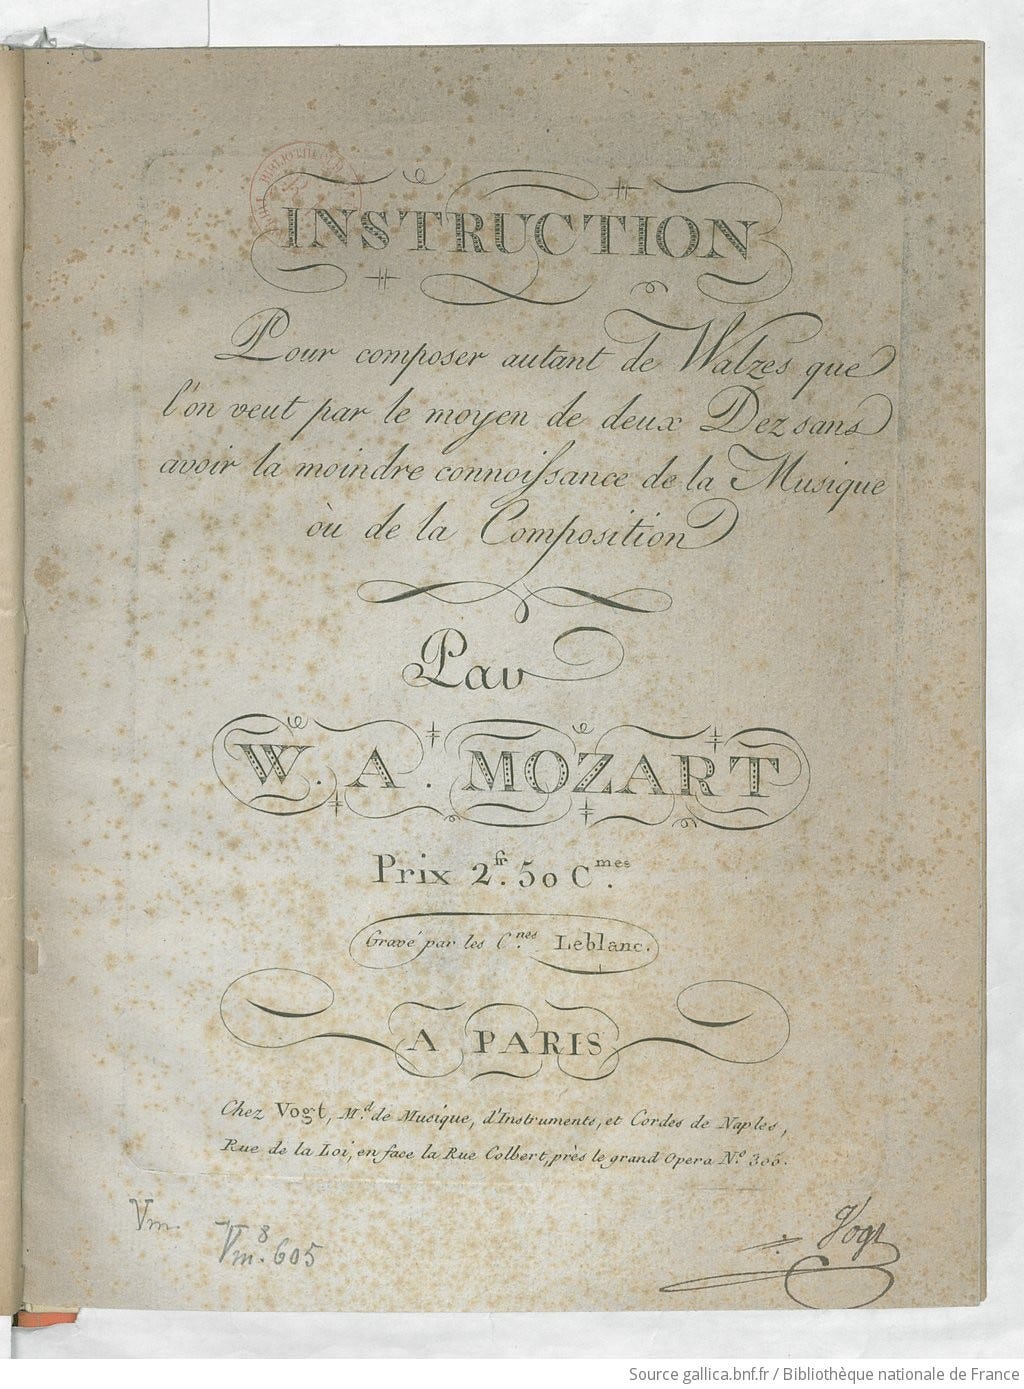 INSTRUCTION
Pour composer autant de Walzes que
l'on veut par le moyen de deux Dez sans
avoir la moindre connoissance de la Musique
où de la Composition
Par
W. A. MOZART
Prix 2.fr 50 C.mes
Gravé par les C.nes Leblanc.
A PARIS
Chez Vogt, M.d de Musique, d'Instruments, et Cordes de Naples,
Rue de la Loi, en face la Rue Colbert, près le grand Opera N.o 306.
Vm.
Vm.8 605
Vogt
Source gallica.bnf.fr / Bibliothèque nationale de France